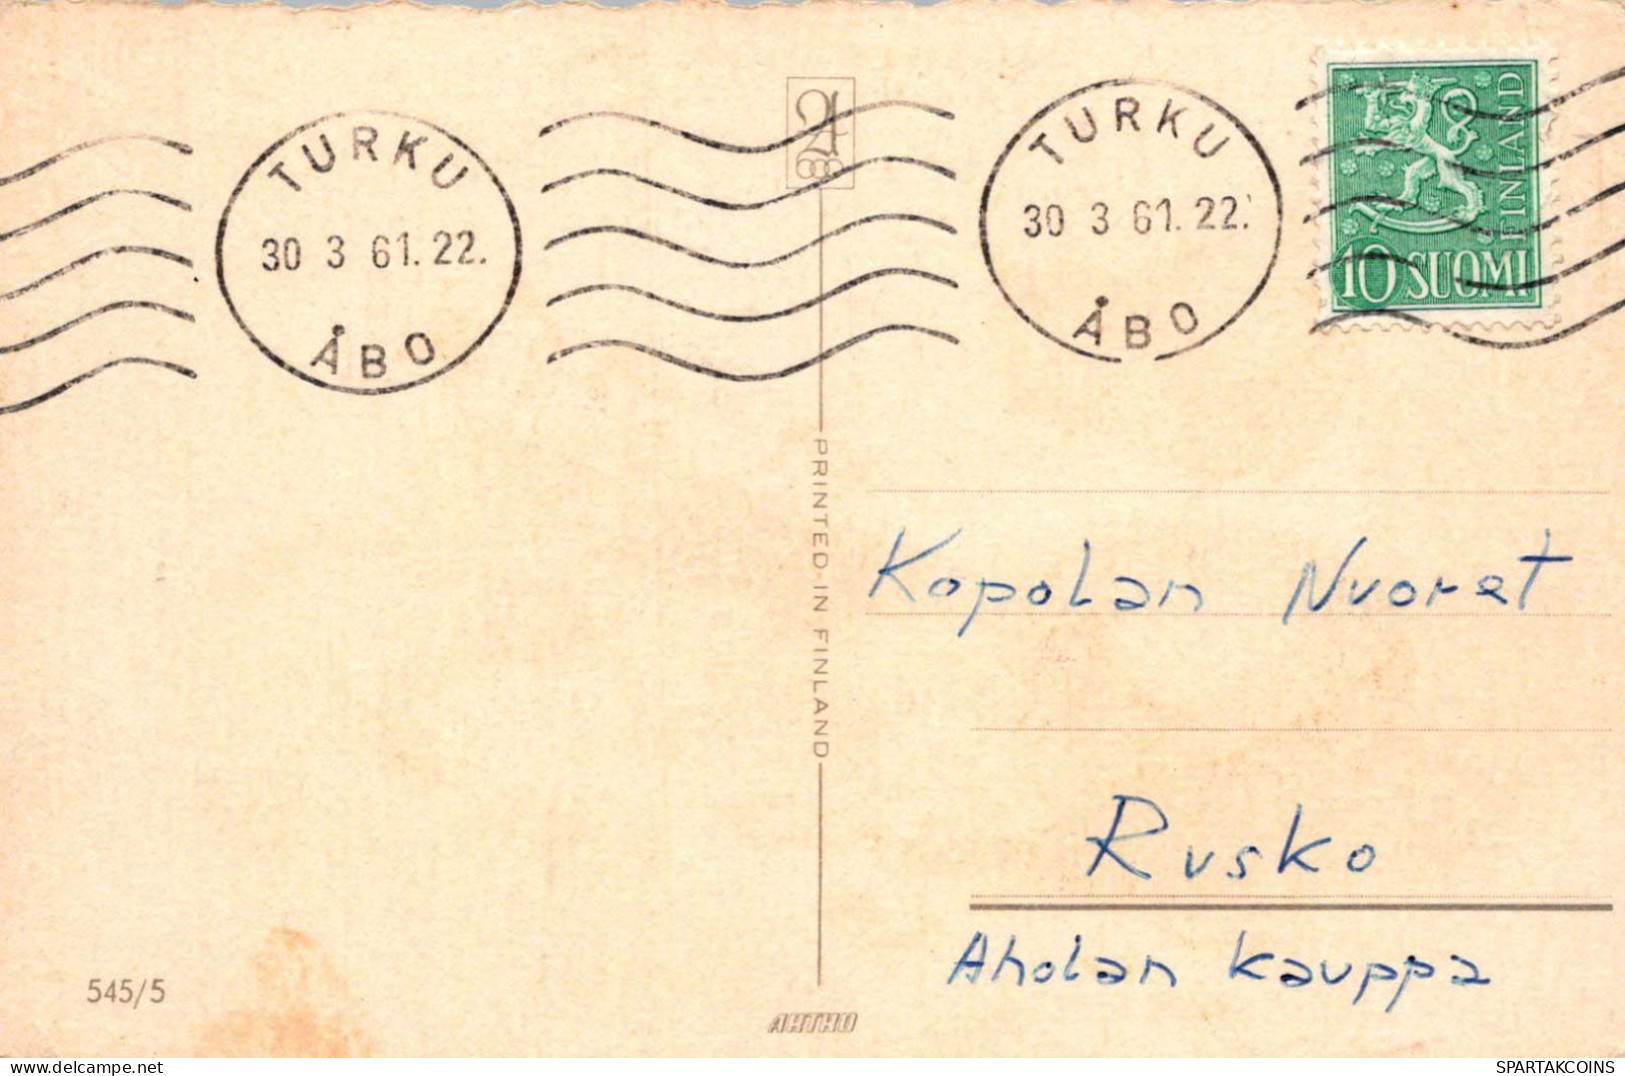 TURKU
30 3 61.22.
ÅBO
TURKU
30 3 61.22.
ÅBO
FINLAND
10 SUOMI
PRINTED IN FINLAND
Kopolan Nuoret
Rusko
Aholan kauppa
545/5
delcampe.net
SPARTAKCOINS